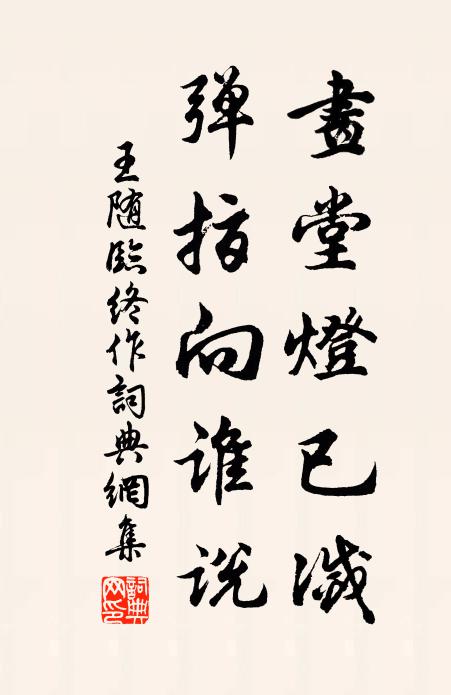 畫堂燈已滅
彈指向誰說
王随臨終作詞典網集
詞典网印